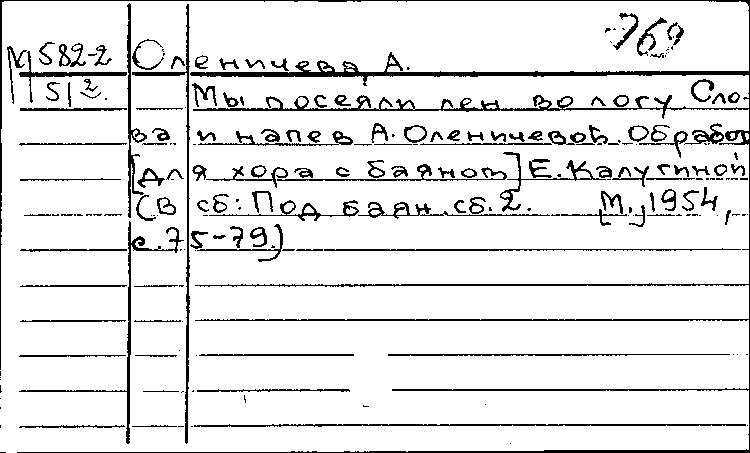 769
М 582-2 Оленичева, А.
512 Мы посеяли лен во логу Сло-
ва и напев А. Оленичевой. Обработ
[для хора с баяном] Е. Калугиной
(В сб: Под баян. сб. 2. [М.], 1954,
с. 75-79.)